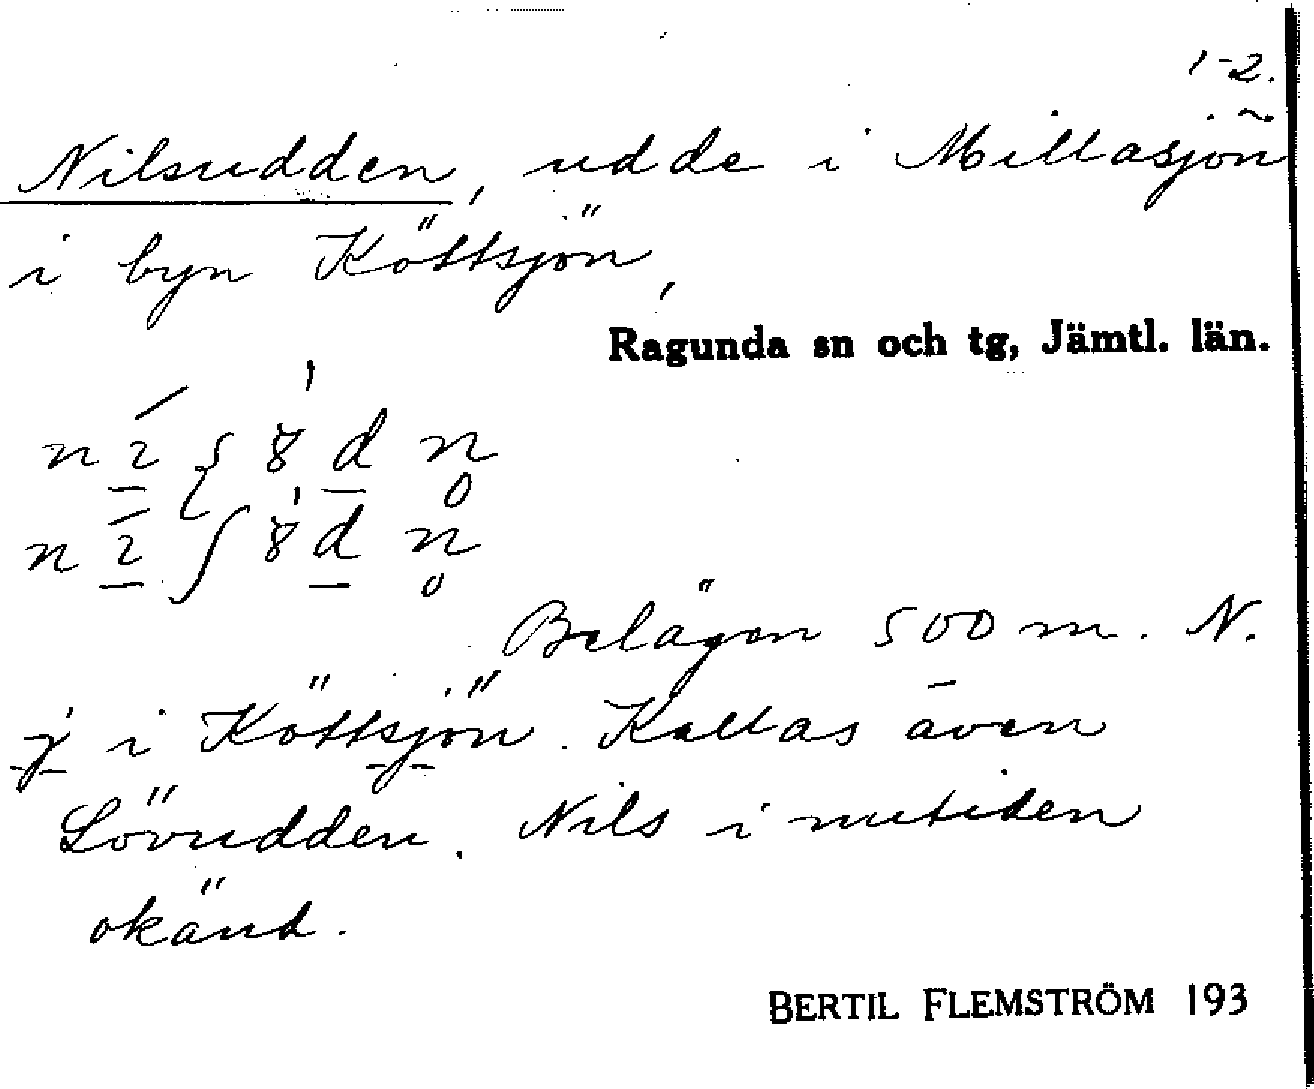 1-2.
Nilsudden, udde i Millasjön
i byn Köttsjön,
Ragunda sn och tg, Jämtl. län.
Belägen 500 m. N.
i Köttsjön. Kallas även
Lövudden. Nils i nutiden
okänd.
BERTIL FLEMSTRÖM 193